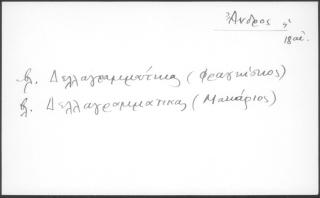 Ἄνδρος
18 αἰ.
βλ. Δελλαγραμμάτικας (Φραγκίσκος)
βλ. Δελλαγραμματικας (Μακάριος)